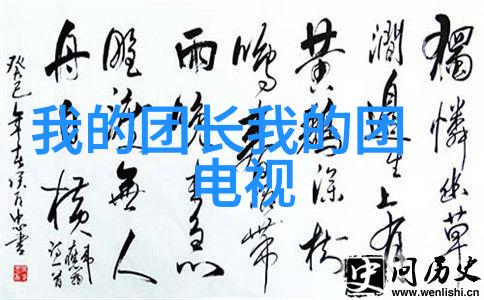 獨憐幽草
澗邊生上有
黃鸝深樹
鳴春 帶
雨晚来急
野渡無人
舟自橫
癸巳年
我的团长我的团
电视
问历史
www.wenlishi.cn